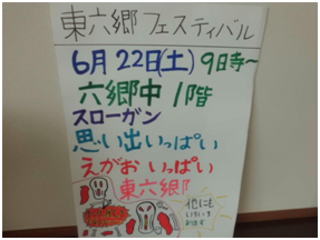 東六郷フェスティバル
6月22日(土) 9時～
六郷中 1階
スローガン
思い出いっぱい
えがおいっぱい
東六郷
他にも
いろいろ